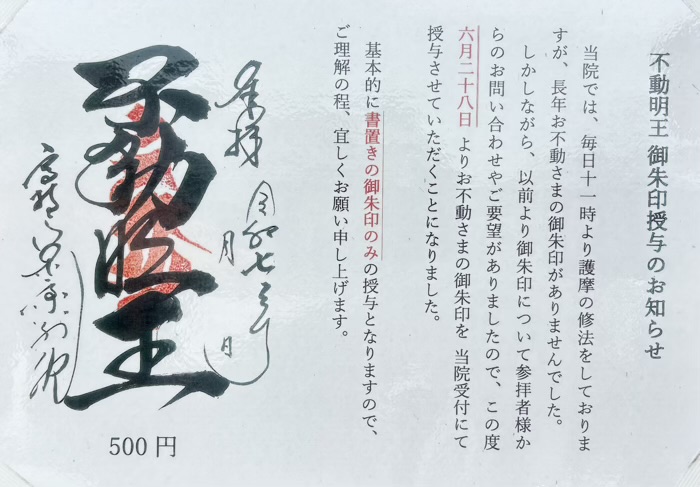 不動明王 御朱印授与のお知らせ
当院では、毎日十一時より護摩の修法をしておりま
すが、長年お不動さまの御朱印がありませんでした。
しかしながら、以前より御朱印について参拝者様か
らのお問い合わせやご要望がありましたので、この度
六月二十八日 よりお不動さまの御朱印を 当院受付にて
授与させていただくことになりました。
基本的に書置きの御朱印のみの授与となりますので、
ご理解の程、宜しくお願い申し上げます。
奉拝 令和七年
月 日
不動明王
500円